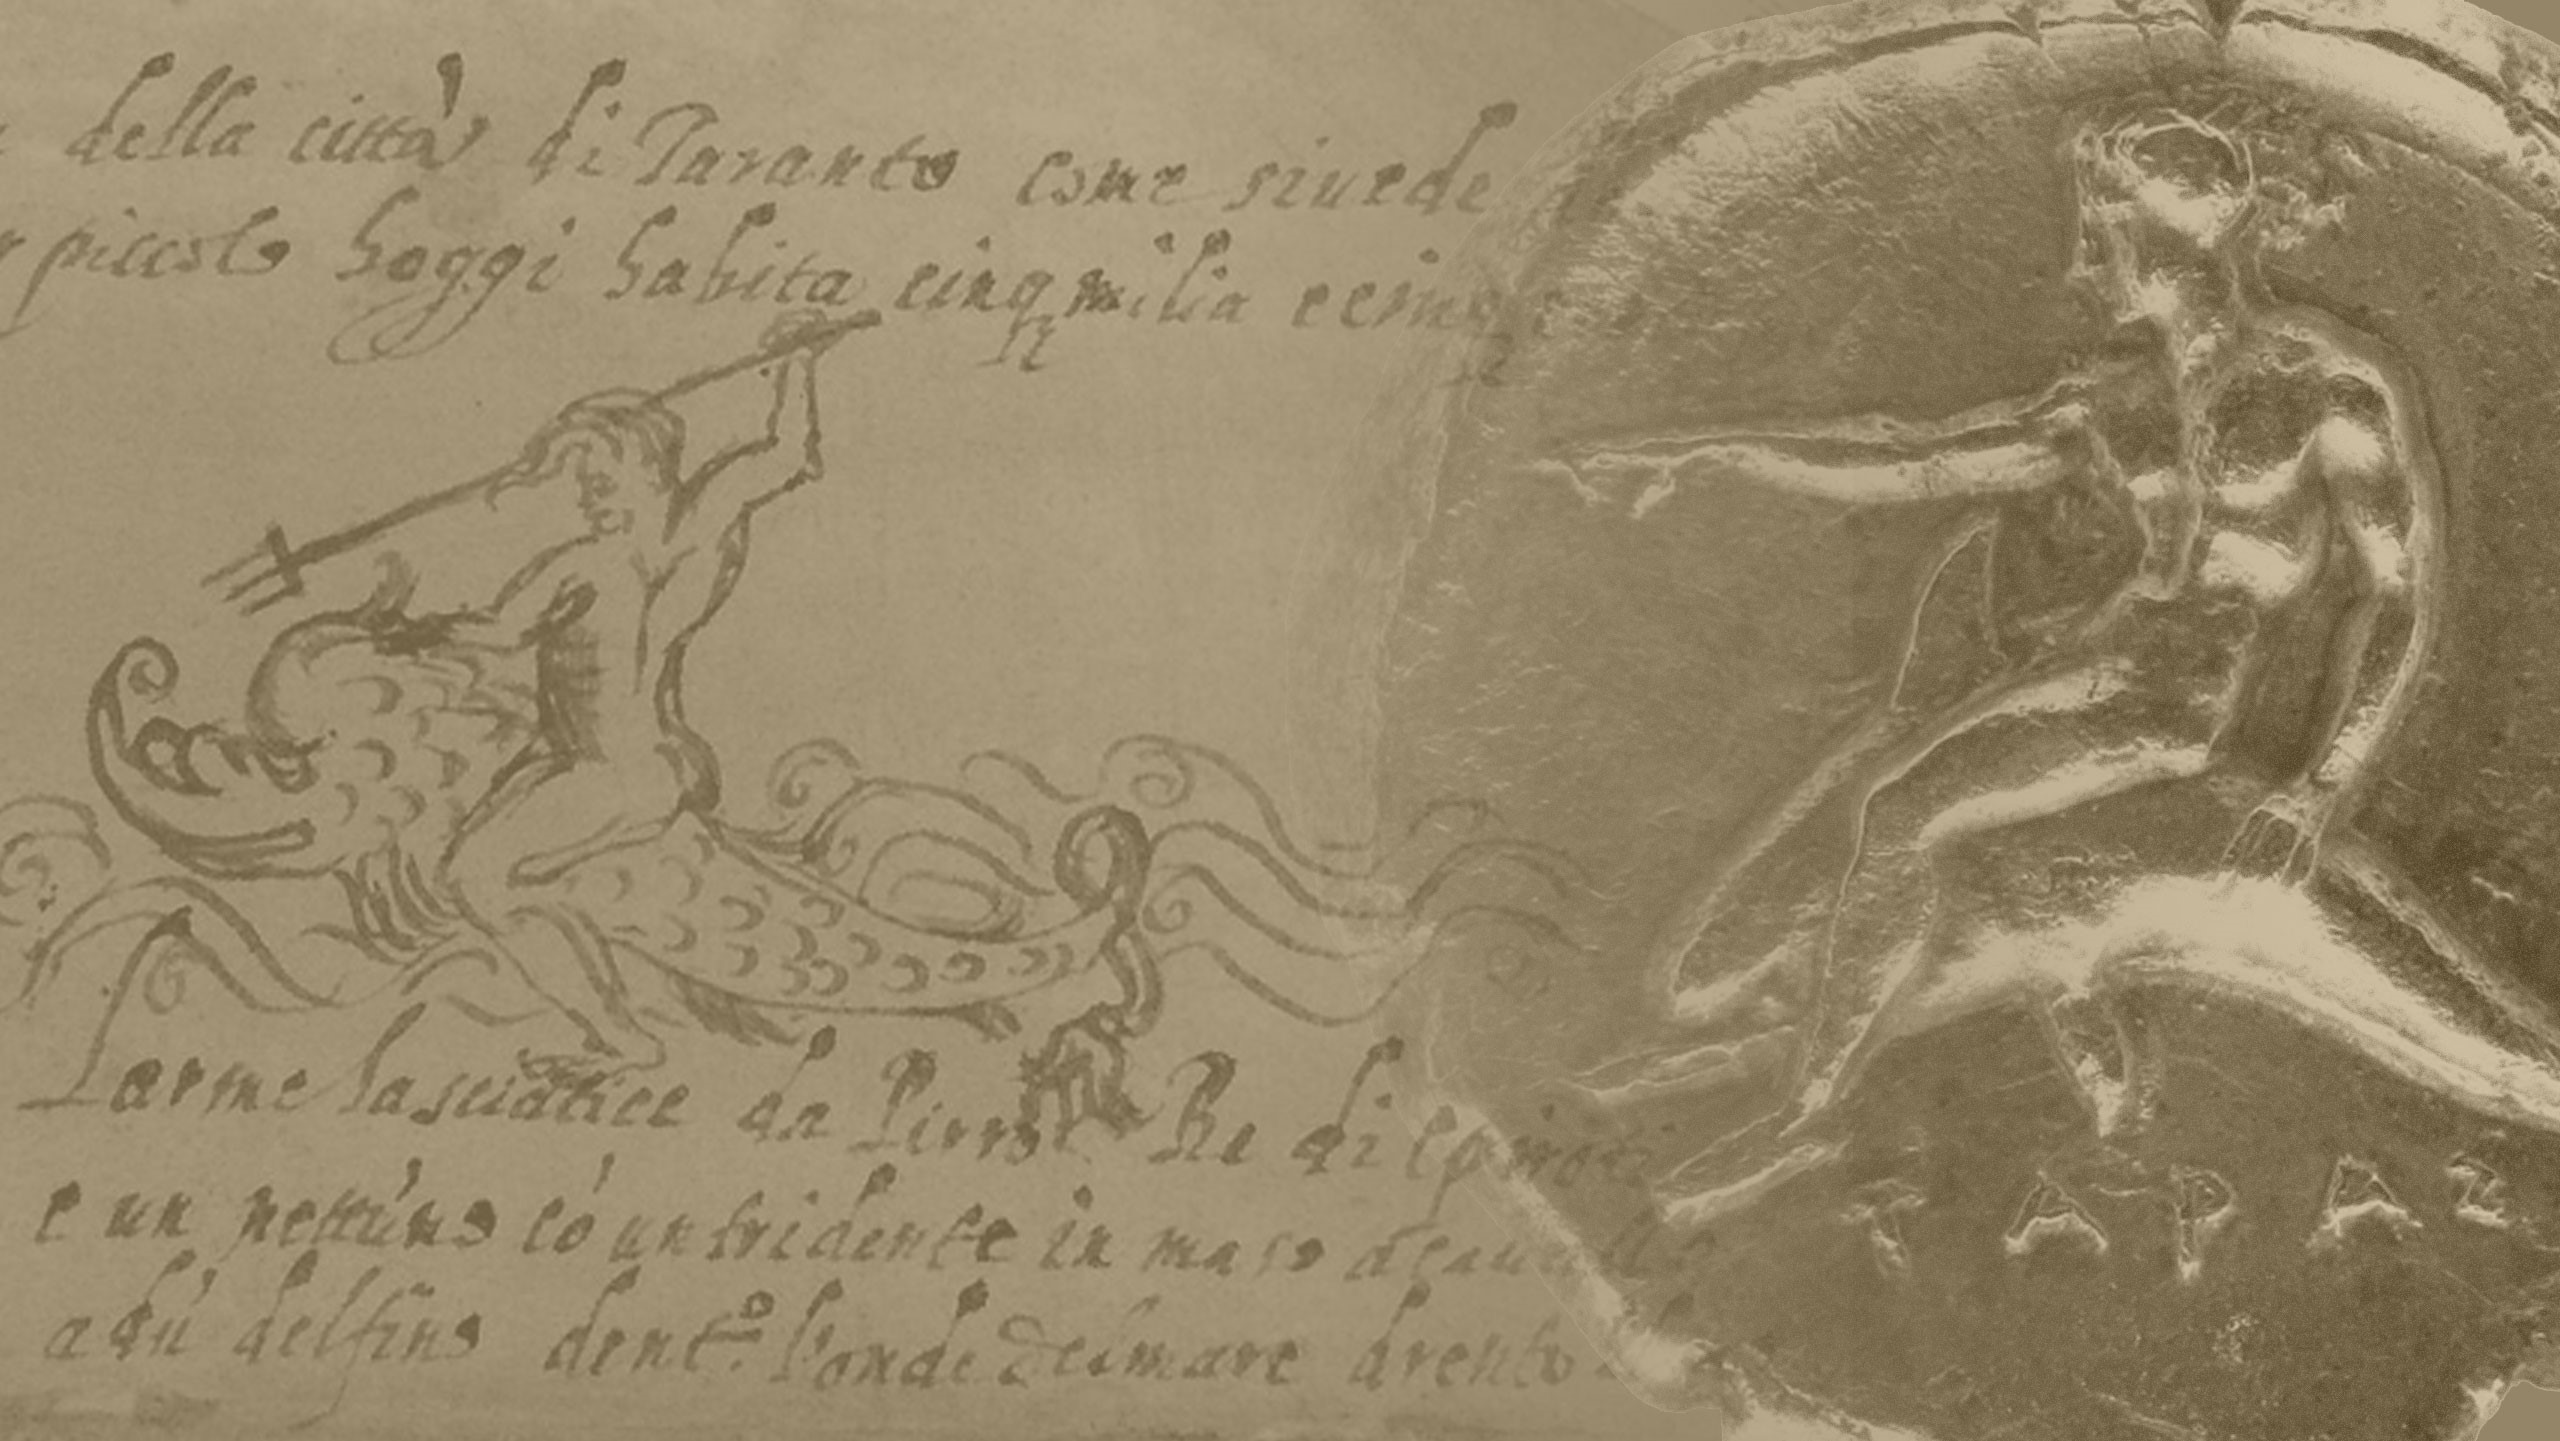 della città di Taranto come siuede
piccolo hoggi habita cinq milia e cinq
Larme lasciatice da Pirro Re di epiro
e un nettuno có un tridente in mano acaua
adú delfino dent.º l'onde delmare drento
ΤΑΡΑΣ